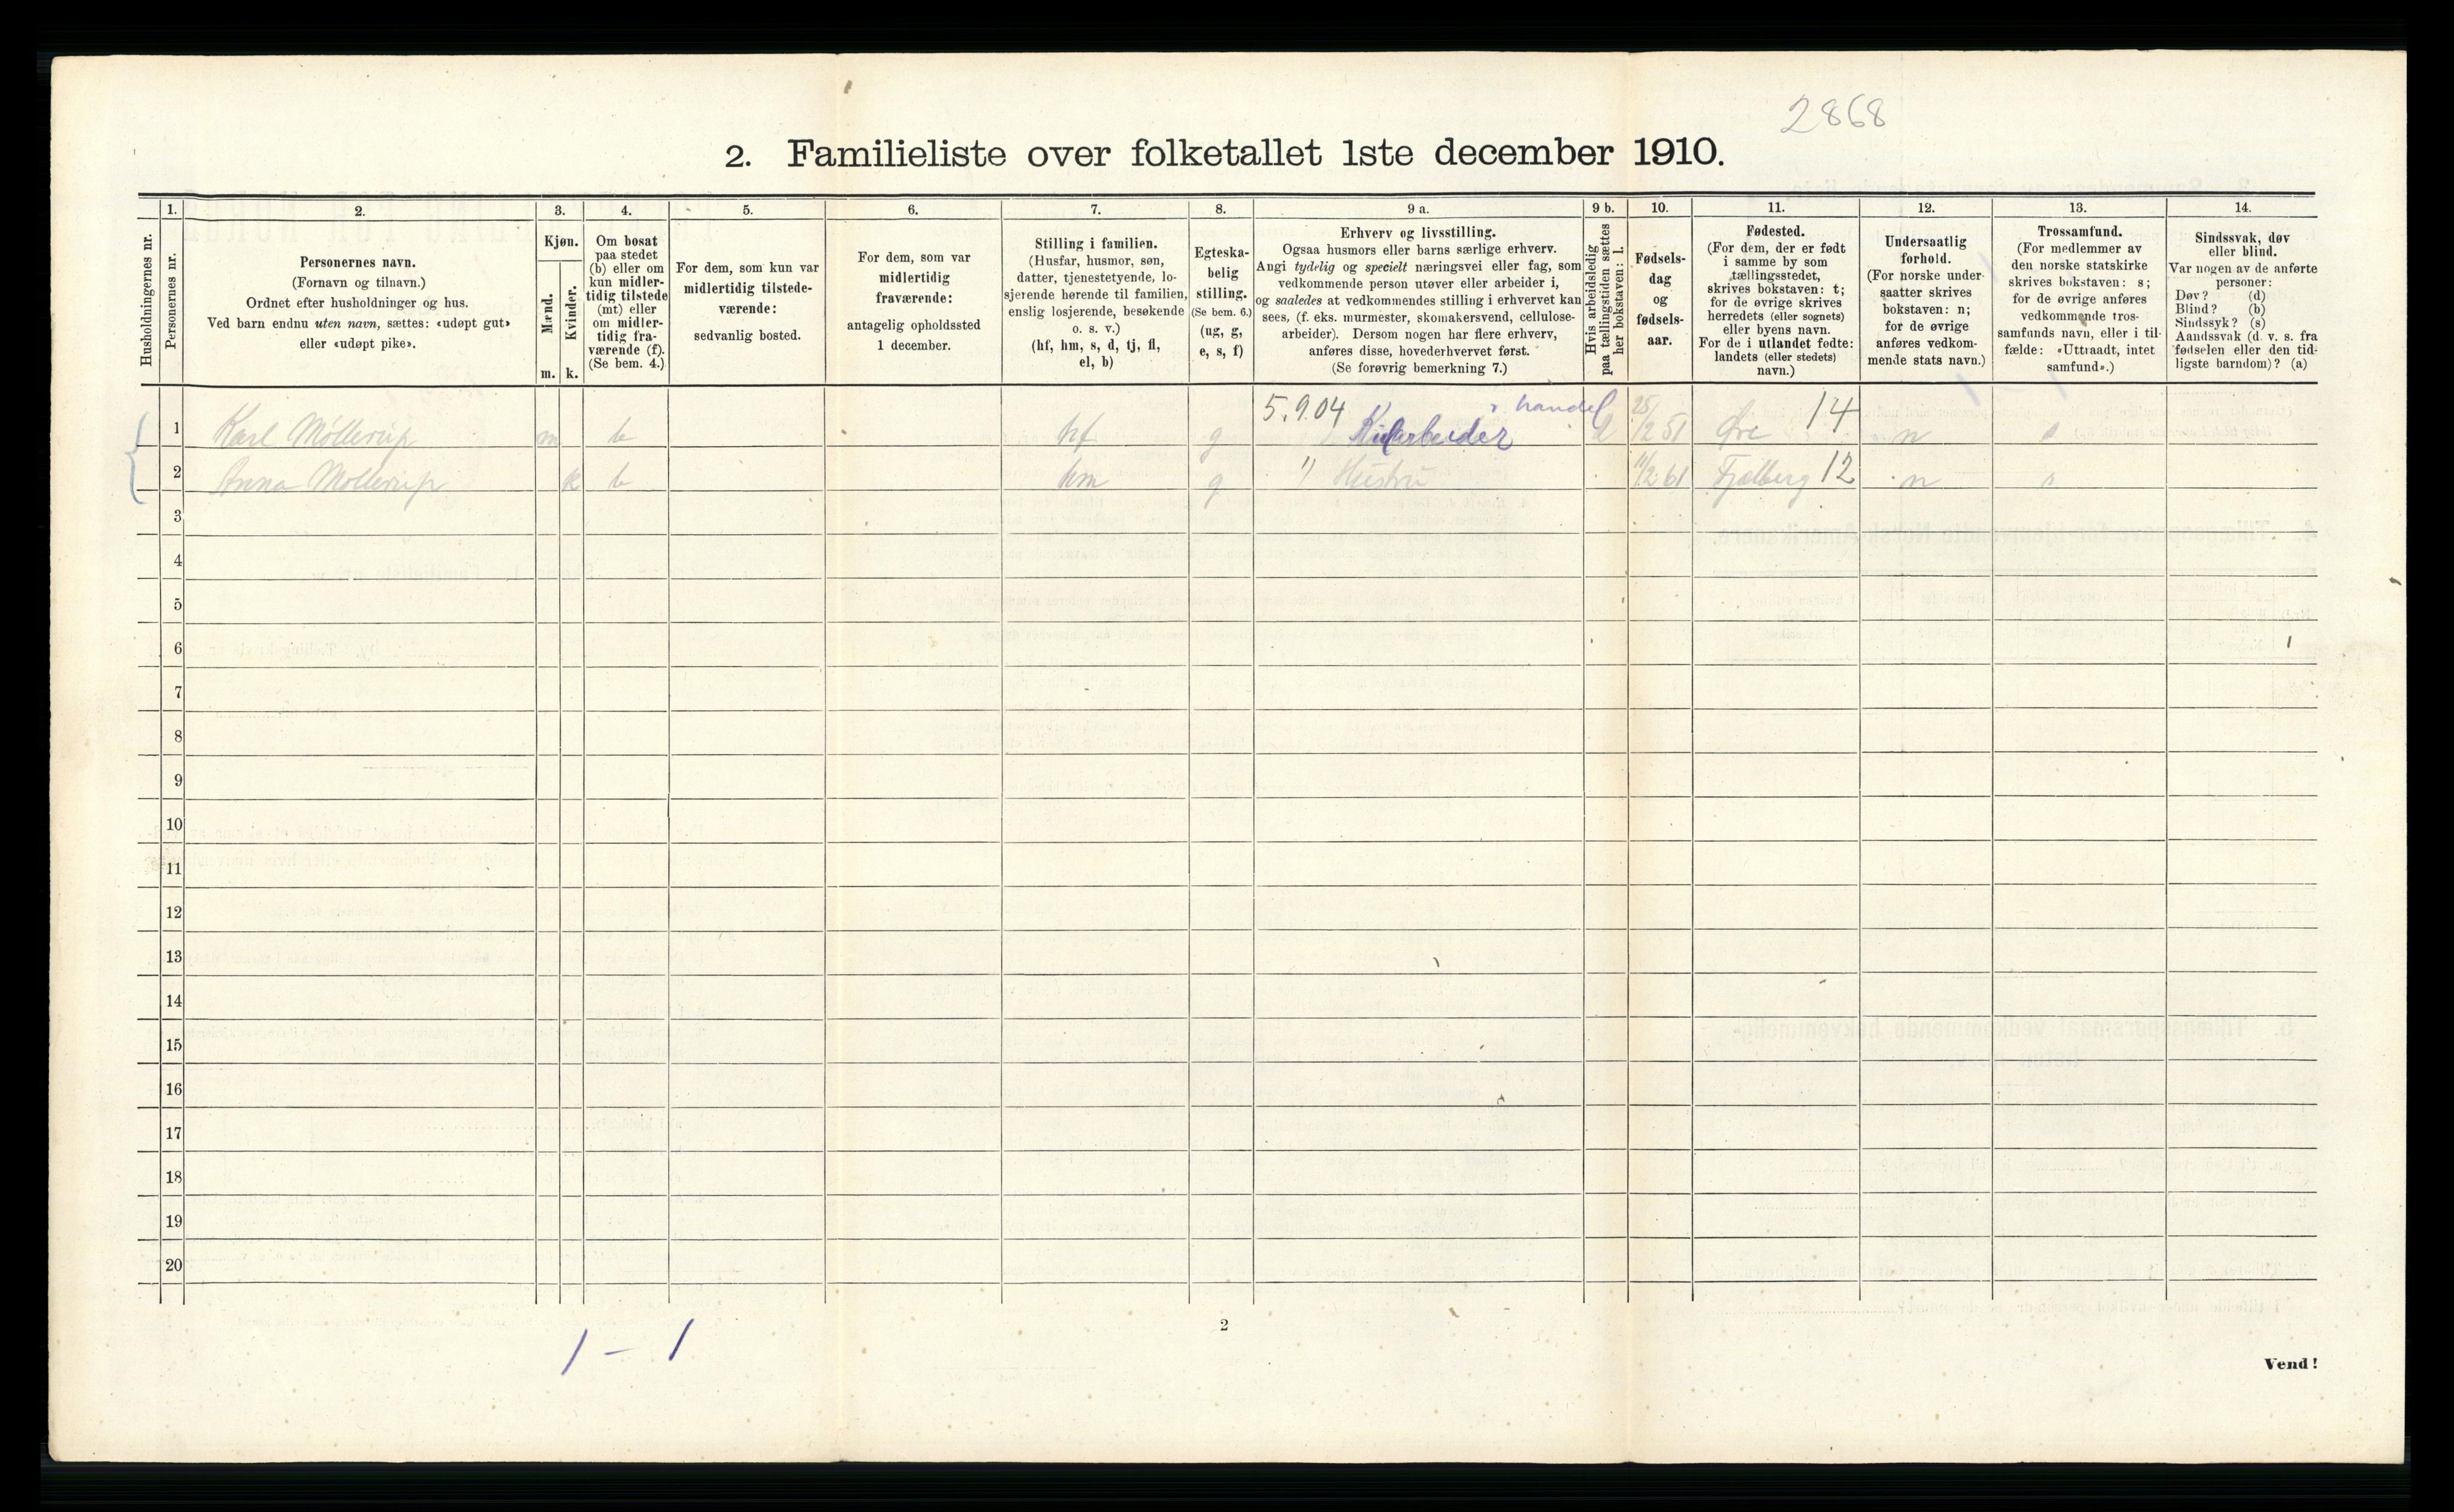 2868
2. Familieliste over folketallet 1ste december 1910.
Husholdningernes nr.
1.
Personernes nr.
2.
Personernes navn.
(Fornavn og tilnavn.)
Ordnet efter husholdninger og hus.
Ved barn endnu uten navn, sættes: «udøpt gut»
eller «udøpt pike».
3.
Kjøn.
Mænd.
Kvinder.
m. k.
4.
Om bosat
paa stedet
(b) eller om
kun midler-
tidig tilstede
(mt) eller
om midler-
tidig fra-
værende (f).
(Se bem. 4.)
5.
For dem, som kun var
midlertidig tilstede-
værende:
sedvanlig bosted.
6.
For dem, som var
midlertidig
fraværende:
antagelig opholdssted
1 december.
7.
Stilling i familien.
(Husfar, husmor, søn,
datter, tjenestetyende, lo-
sjerende hørende til familien,
enslig losjerende, besøkende
o. s. v.)
(hf, hm, s, d, tj, fl,
el, b)
8.
Egteska-
belig
stilling.
(Se bem. 6.)
(ug, g,
e, s, f)
9 a.
Erhverv og livsstilling.
Ogsaa husmors eller barns særlige erhverv.
Angi tydelig og specielt næringsvei eller fag, som
vedkommende person utøver eller arbeider i,
og saaledes at vedkommendes stilling i erhvervet kan
sees, (f. eks. murmester, skomakersvend, cellulose-
arbeider). Dersom nogen har flere erhverv,
anføres disse, hovederhvervet først.
(Se forøvrig bemerkning 7.)
9 b.
Hvis arbeidsledig
paa tællingstiden sættes
her bokstaven: l.
10.
Fødsels-
dag
og
fødsels-
aar.
11.
Fødested.
(For dem, der er født
i samme by som
tællingsstedet,
skrives bokstaven: t;
for de øvrige skrives
herredets (eller sognets)
eller byens navn.
For de i utlandet fødte:
landets (eller stedets)
navn.)
12.
Undersaatlig
forhold.
(For norske under-
saatter skrives
bokstaven: n;
for de øvrige
anføres vedkom-
mende stats navn.)
13.
Trossamfund.
(For medlemmer av
den norske statskirke
skrives bokstaven: s;
for de øvrige anføres
vedkommende tros-
samfunds navn, eller i til-
fælde: «Uttraadt, intet
samfund».)
14.
Sindssvak, døv
eller blind.
Var nogen av de anførte
personer:
Døv? (d)
Blind? (b)
Sindssyk? (s)
Aandssvak (d. v. s. fra
fødselen eller den tid-
ligste barndom)? (a)
5.9.04 handel
1 Karl Møllerup m b hf g arbeider 25/2 51 Øre 14 n s
2 Anna Møllerup k b hm g " Hustru 11/2 61 Fjelberg 12 n s
3
4
5
6
7
8
9
10
11
12
13
14
15
16
17
18
19
20
1 - 1
2
Vend!